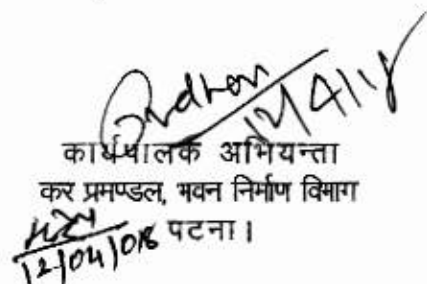 12/4/18
कार्यपालक अभियन्ता
कर प्रमण्डल, भवन निर्माण विभाग
पटना।
12/04/018